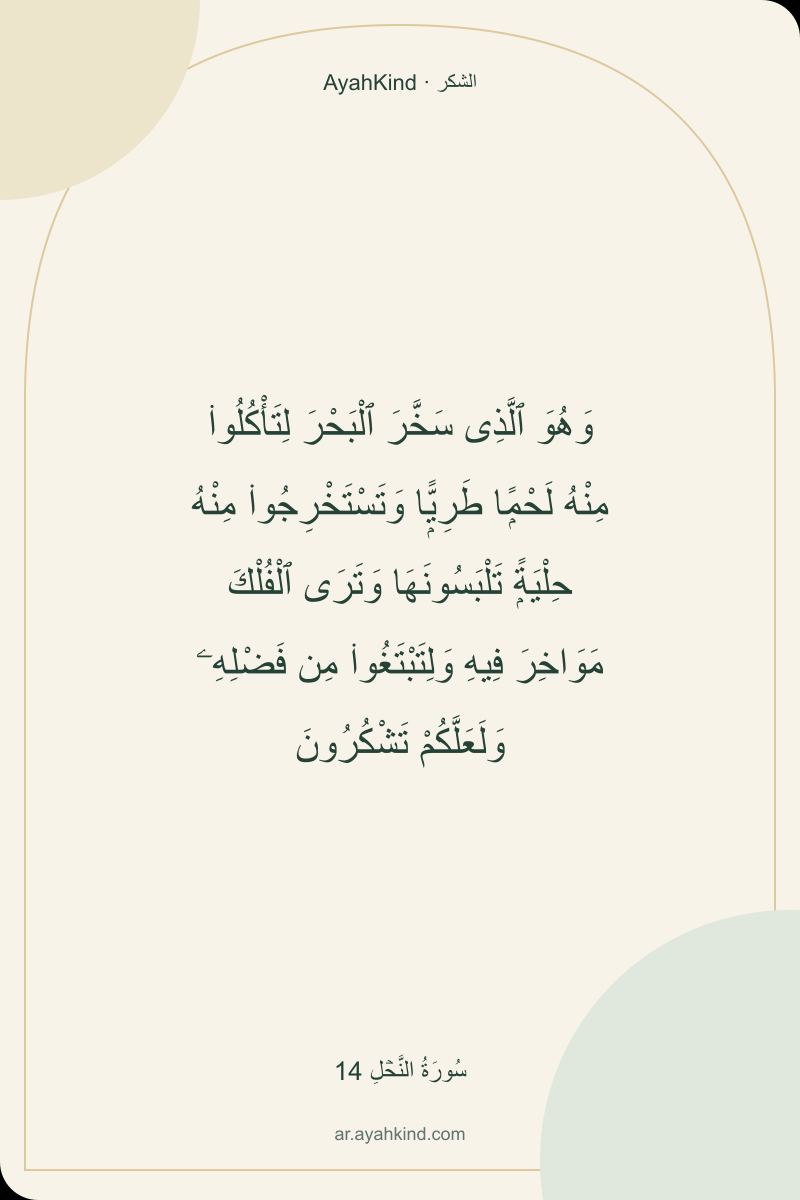 AyahKind · الشكر
وَهُوَ ٱلَّذِى سَخَّرَ ٱلْبَحْرَ لِتَأْكُلُوا۟
مِنْهُ لَحْمًۭا طَرِيًّۭا وَتَسْتَخْرِجُوا۟ مِنْهُ
حِلْيَةًۭ تَلْبَسُونَهَا وَتَرَى ٱلْفُلْكَ
مَوَاخِرَ فِيهِ وَلِتَبْتَغُوا۟ مِن فَضْلِهِۦ
وَلَعَلَّكُمْ تَشْكُرُونَ
سُورَةُ النَّحۡلِ 14
ar.ayahkind.com